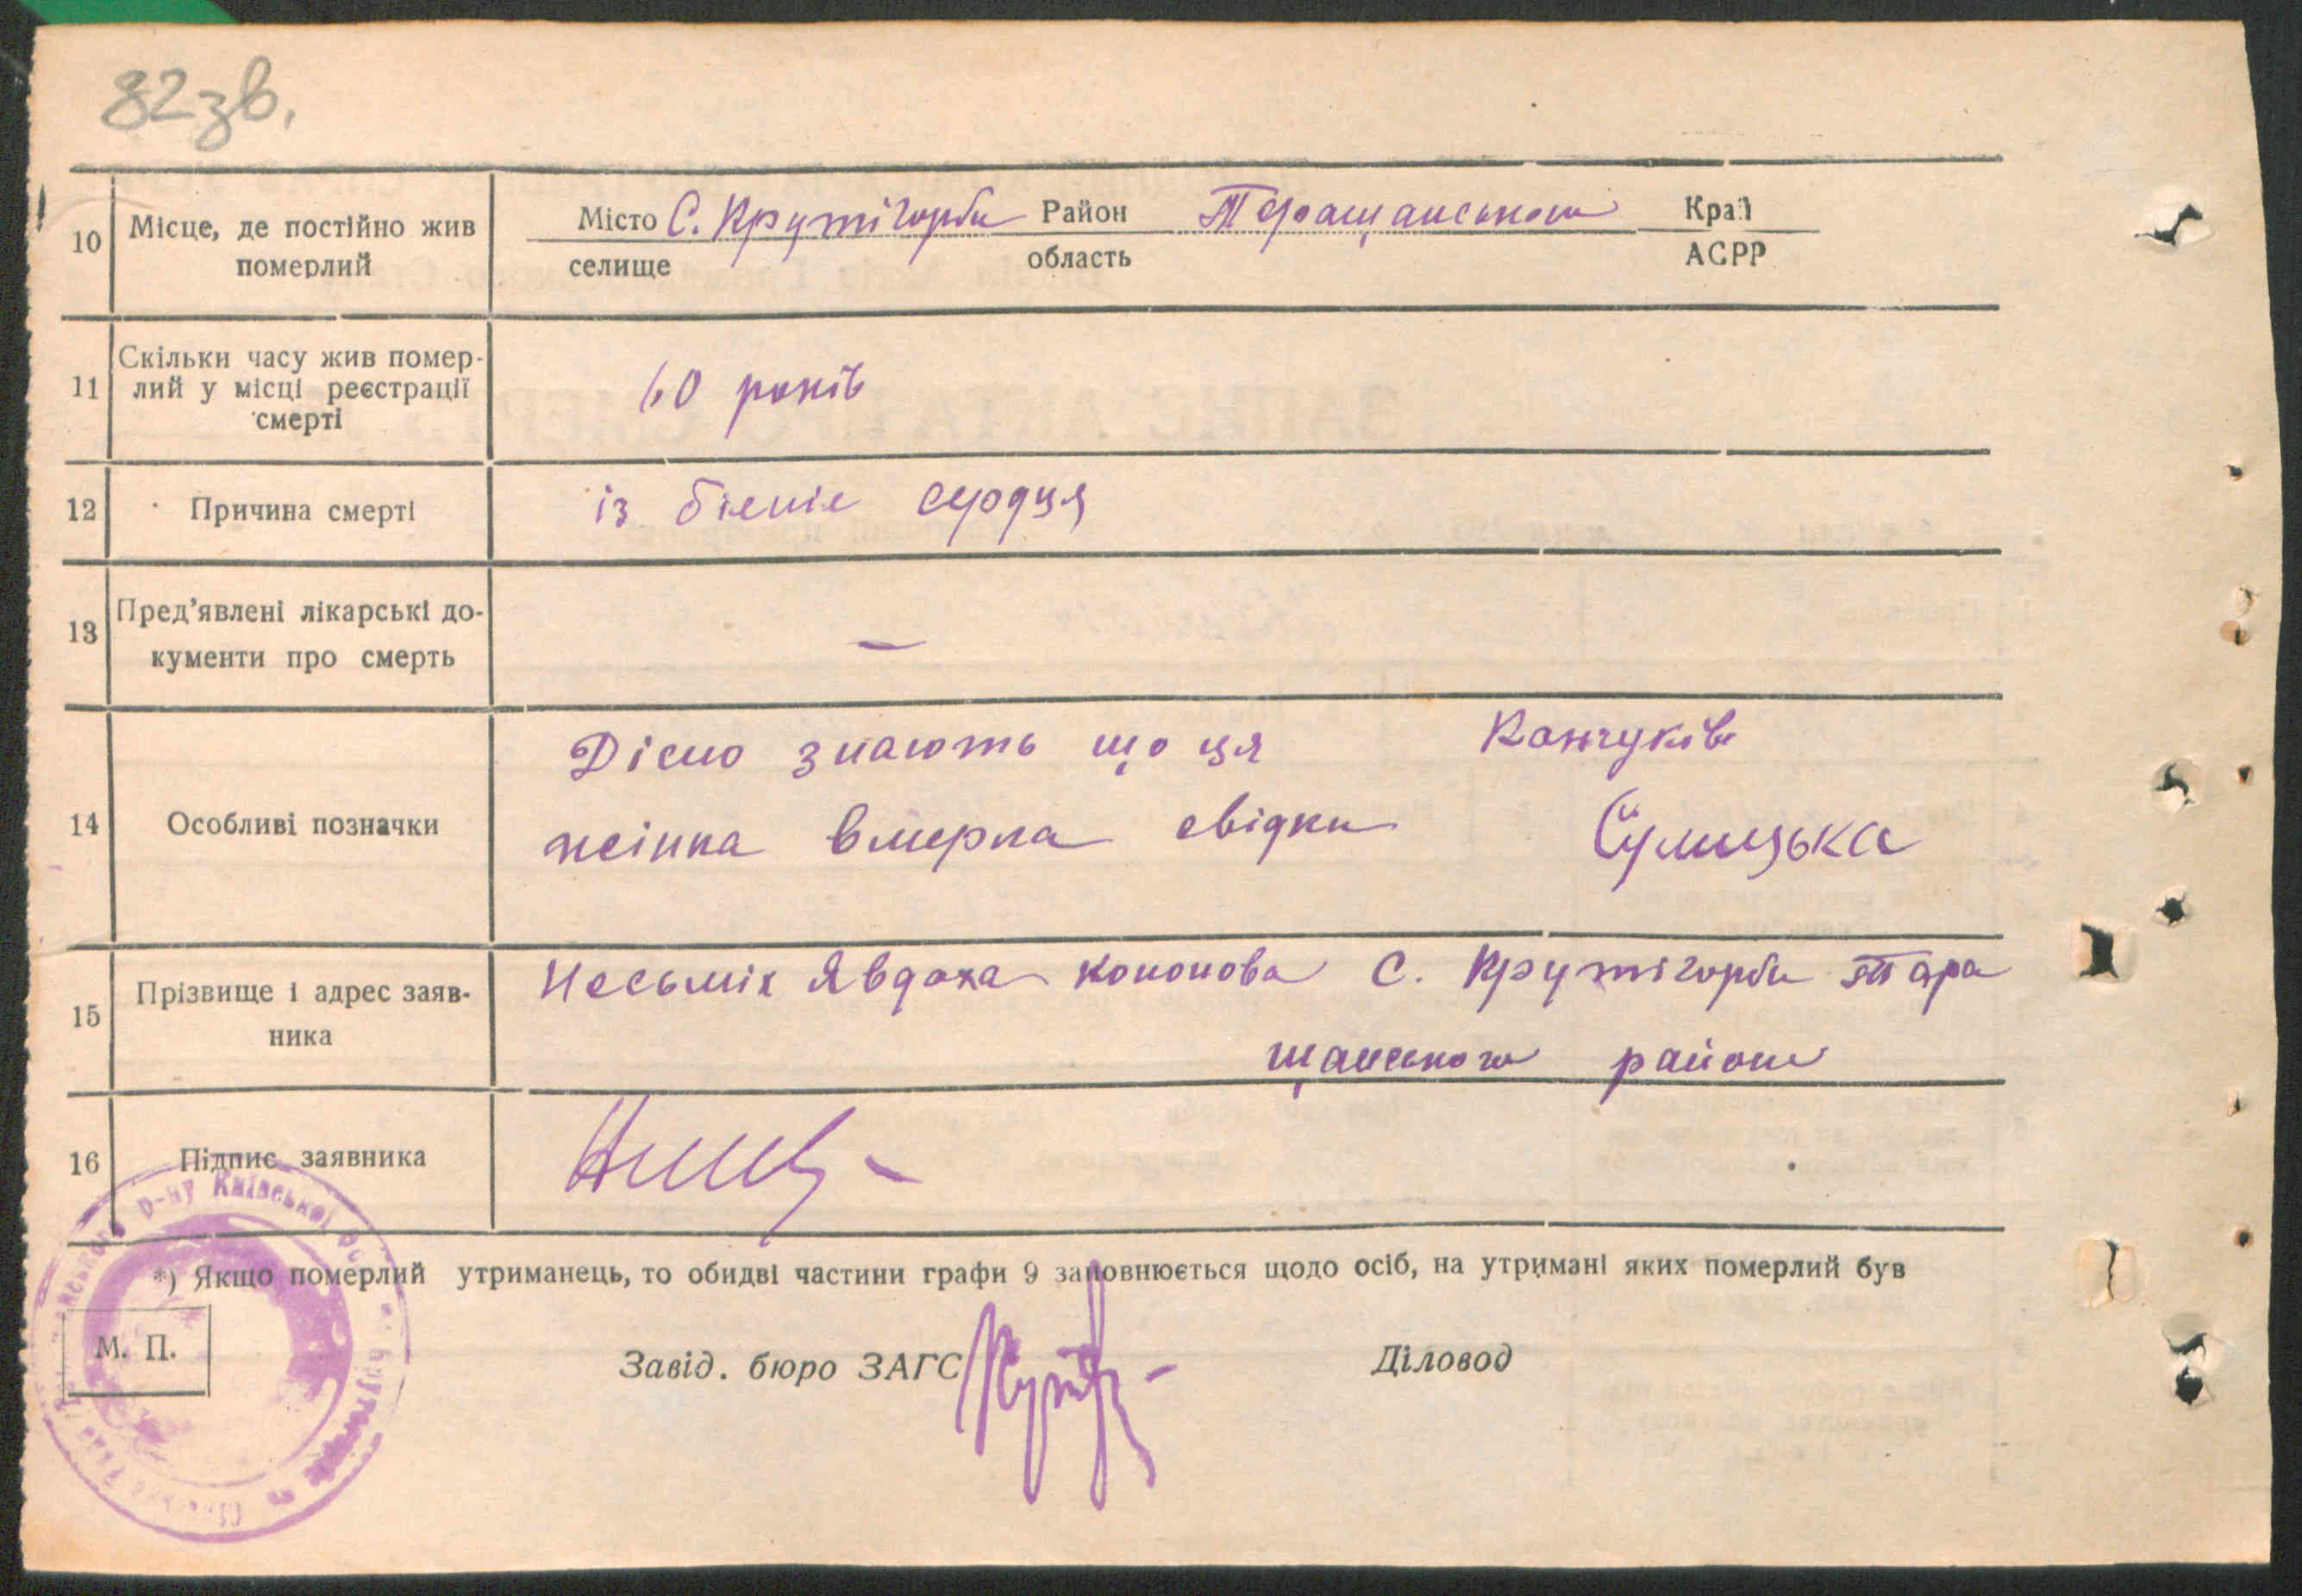 82зв.
10 Місце, де постійно жив померлий Місто С. Крутігорби Район Теращанського Край
селище область АСРР
11 Скільки часу жив помер-
лий у місці реєстрації
смерті
60 років
12 Причина смерті із біеніе сердця
13 Пред’явлені лікарські до-
кументи про смерть
—
14 Особливі позначки
Дісно знають що ця Канчуків
жінка вмерла свідки Сулицька
15 Прізвище і адрес заяв-
ника
Несьміх Явдоха Кононова С. Крутігорби Тара
щанського району
16 Підпис заявника
*) Якщо померлий утриманець, то обидві частини графи 9 заповнюється щодо осіб, на утримані яких померлий був
М. П.
Завід. бюро ЗАГС Діловод
р-ну Київської